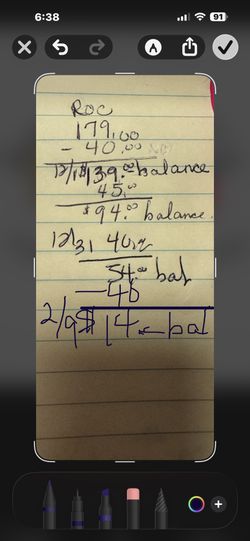 6:38
91
ROC
179.00
- 40.00
12/1 $139.00 balance
45.00
$94.00 balance.
12/31 40.00
54.00 bal
- 40
2/9 $14 - bal